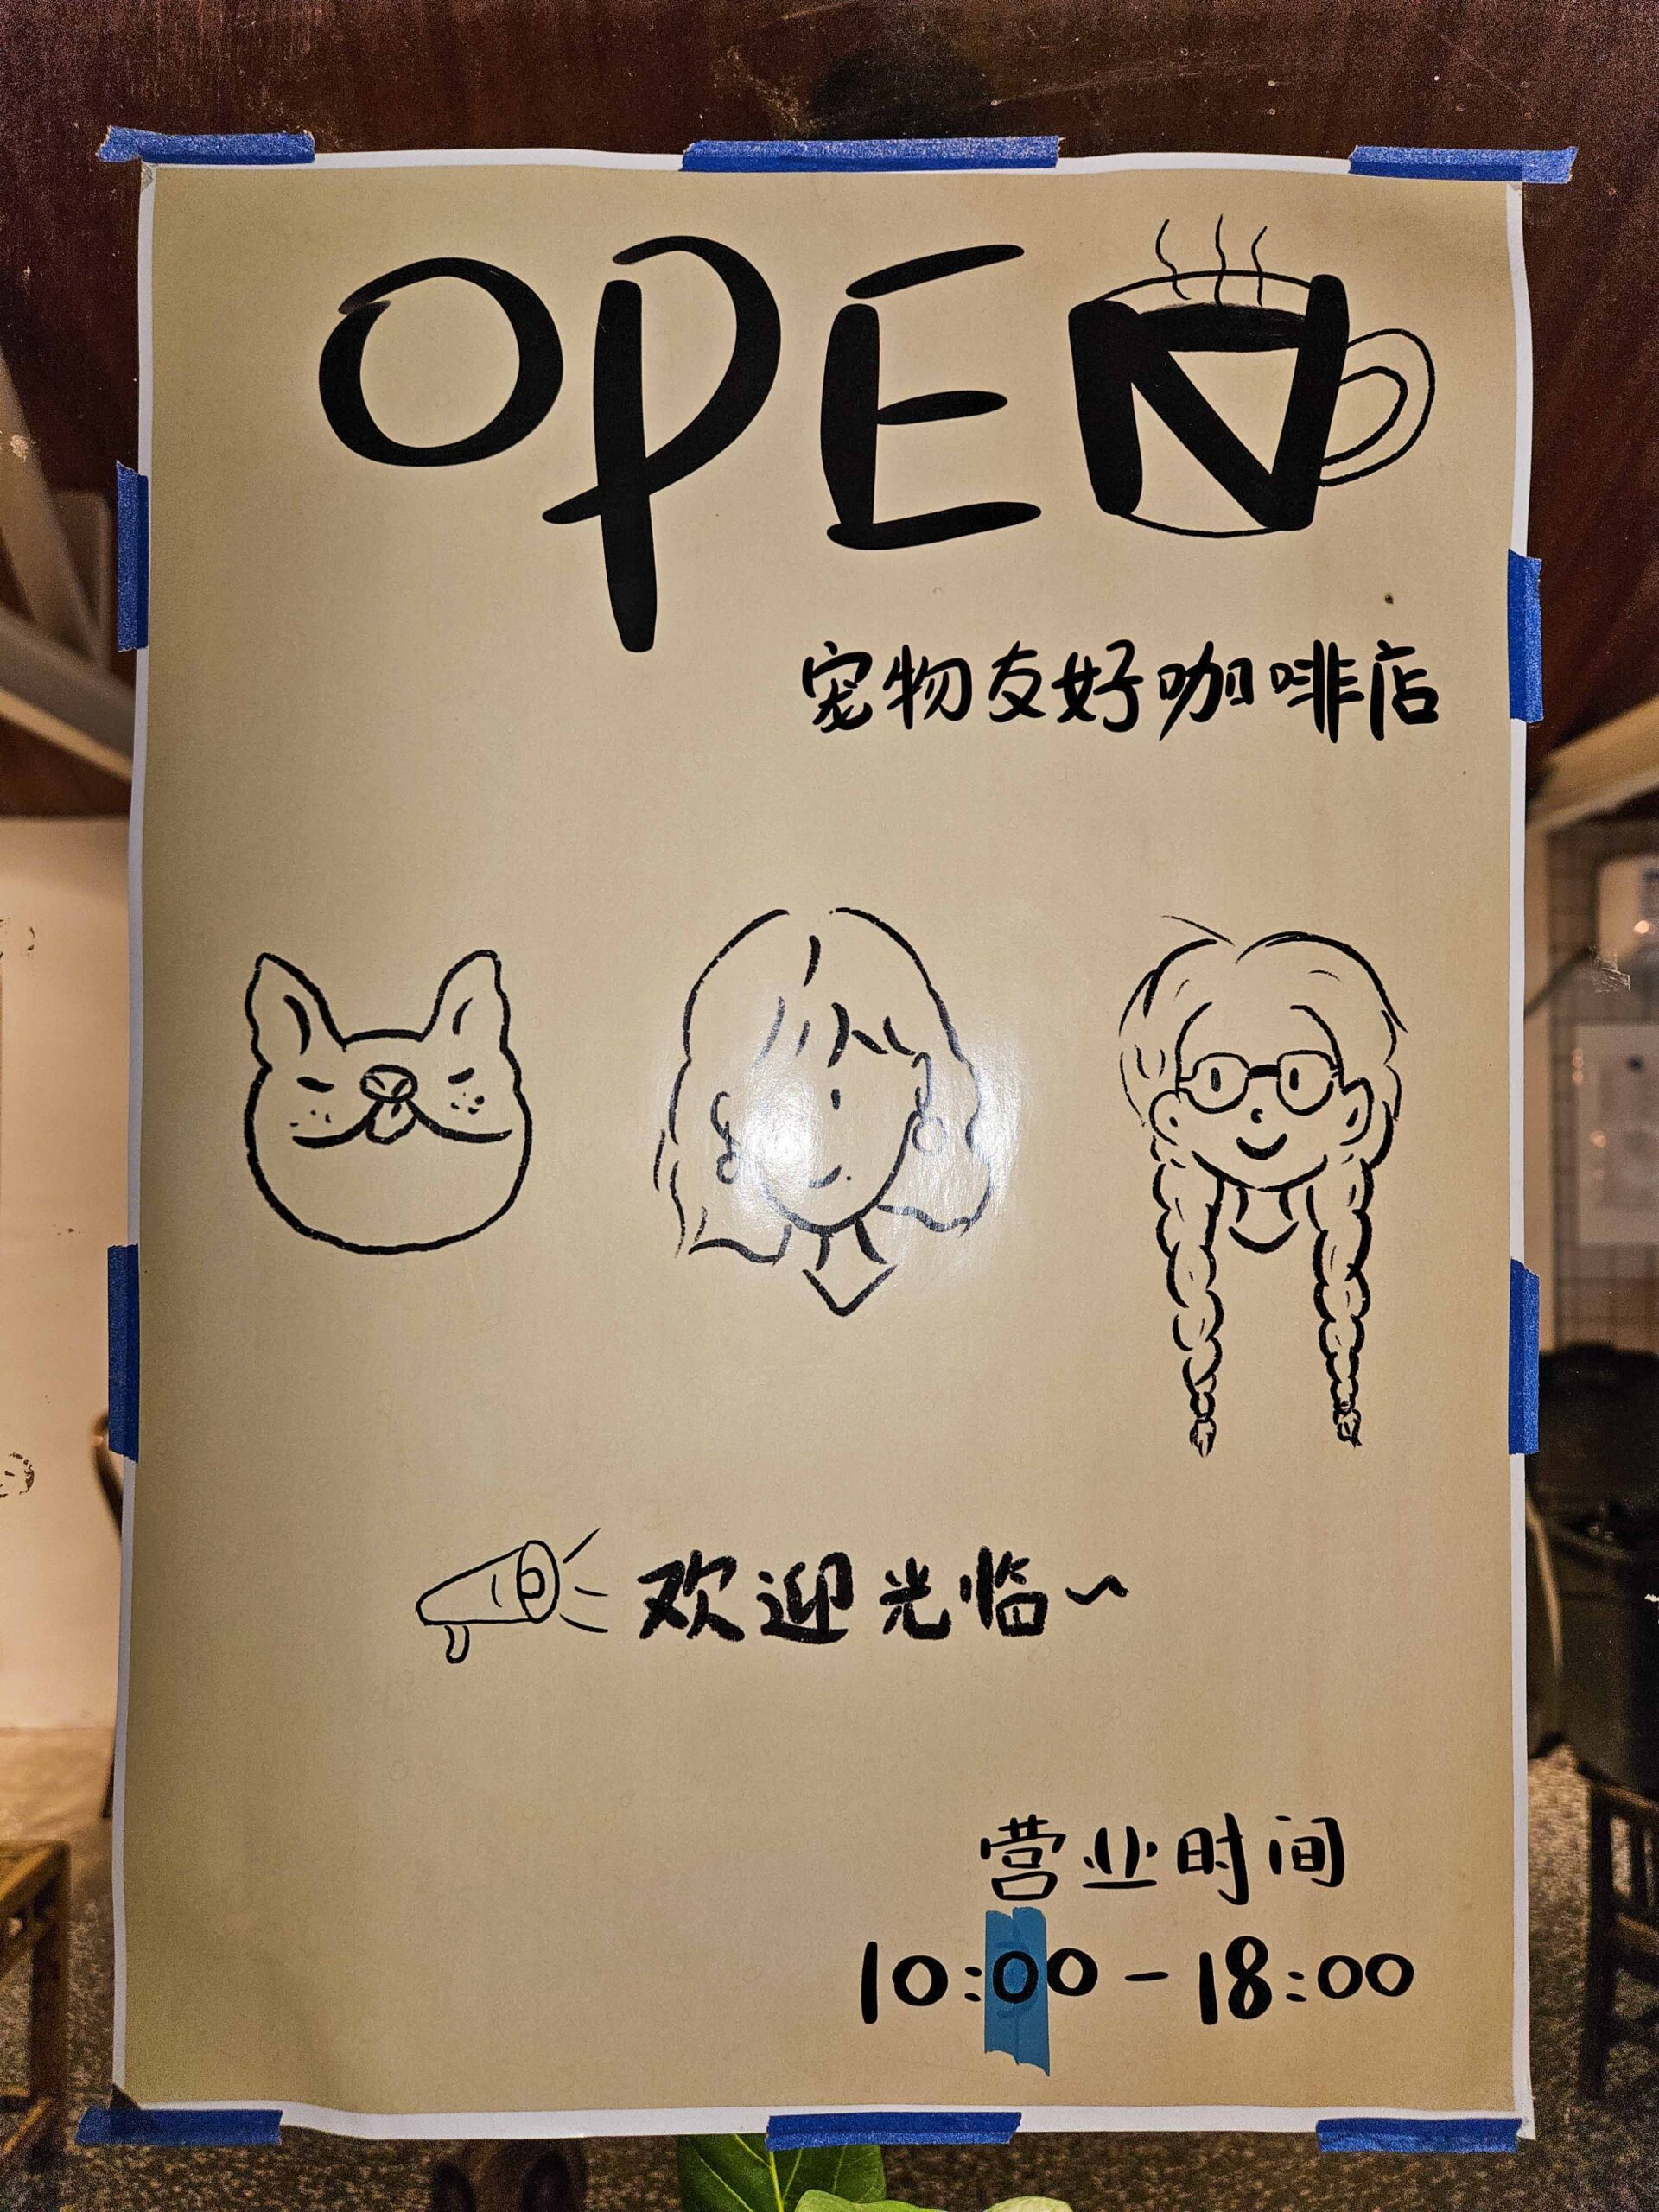 OPEN
宠物友好咖啡店
欢迎光临~
营业时间
10:00-18:00